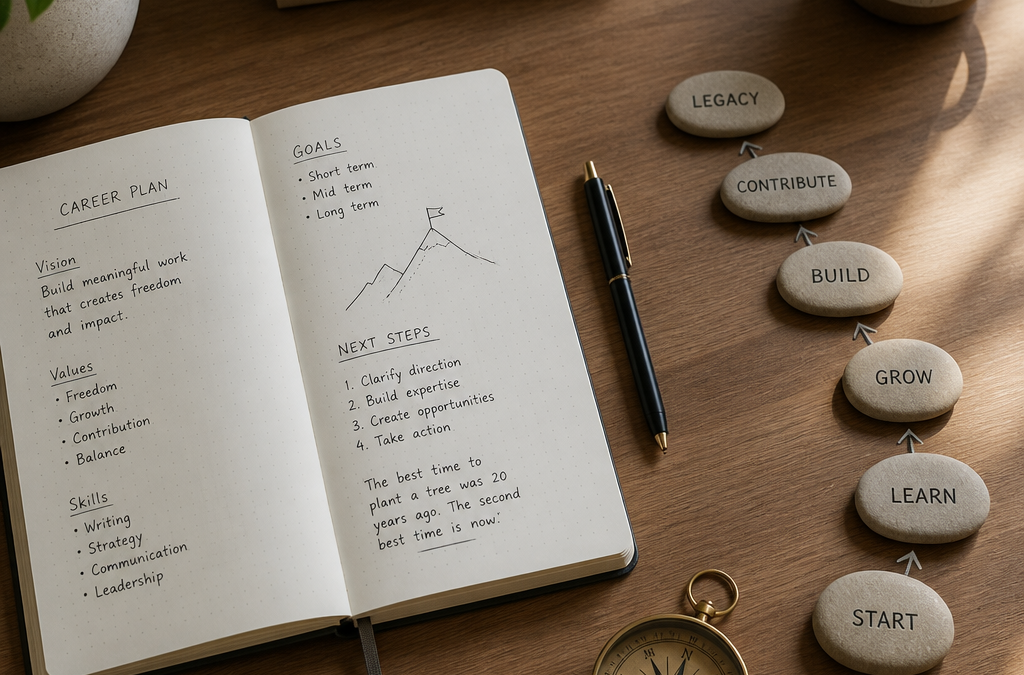 CAREER PLAN
Vision
Build meaningful work
that creates freedom
and impact.
Values
• Freedom
• Growth
• Contribution
• Balance
Skills
• Writing
• Strategy
• Communication
• Leadership
GOALS
• Short term
• Mid term
• Long term
NEXT STEPS
1. Clarify direction
2. Build expertise
3. Create opportunities
4. Take action
The best time to
plant a tree was 20
years ago. The second
best time is now."
LEGACY
CONTRIBUTE
BUILD
GROW
LEARN
START
N